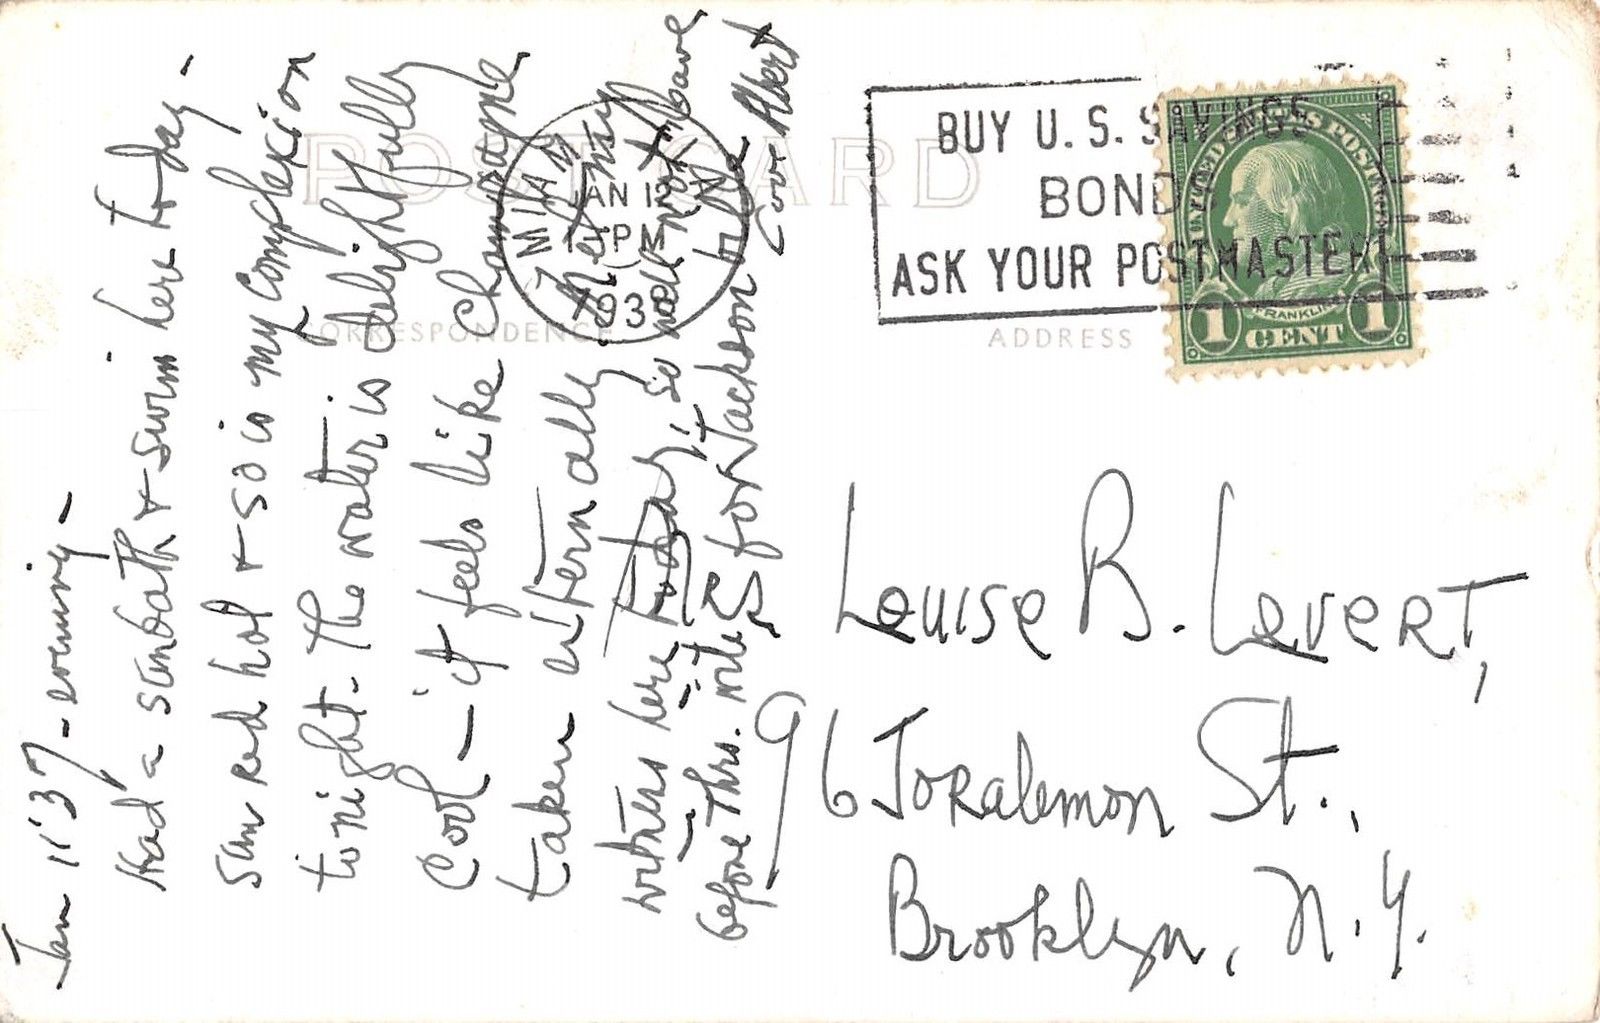 POST CARD
CORRESPONDENCE
ADDRESS
MIAMI
JAN 12
PM
193
BUY U. S. SAVINGS
BONDS
ASK YOUR POSTMASTER
UNITED STATES POSTAGE
FRANKLIN
1 CENT 1
Jan 11 '37 - evening -
Had a sunbath & swim here today -
Sun red hot & so is my complexion
tonight. The water is delightfully
cool - it feels like champagne
taken internally
witness here today, so will not have
before Thrs. for Jackson
Love Albert
Louise B. Levert,
96 Joralemon St.,
Brooklyn, N.Y.